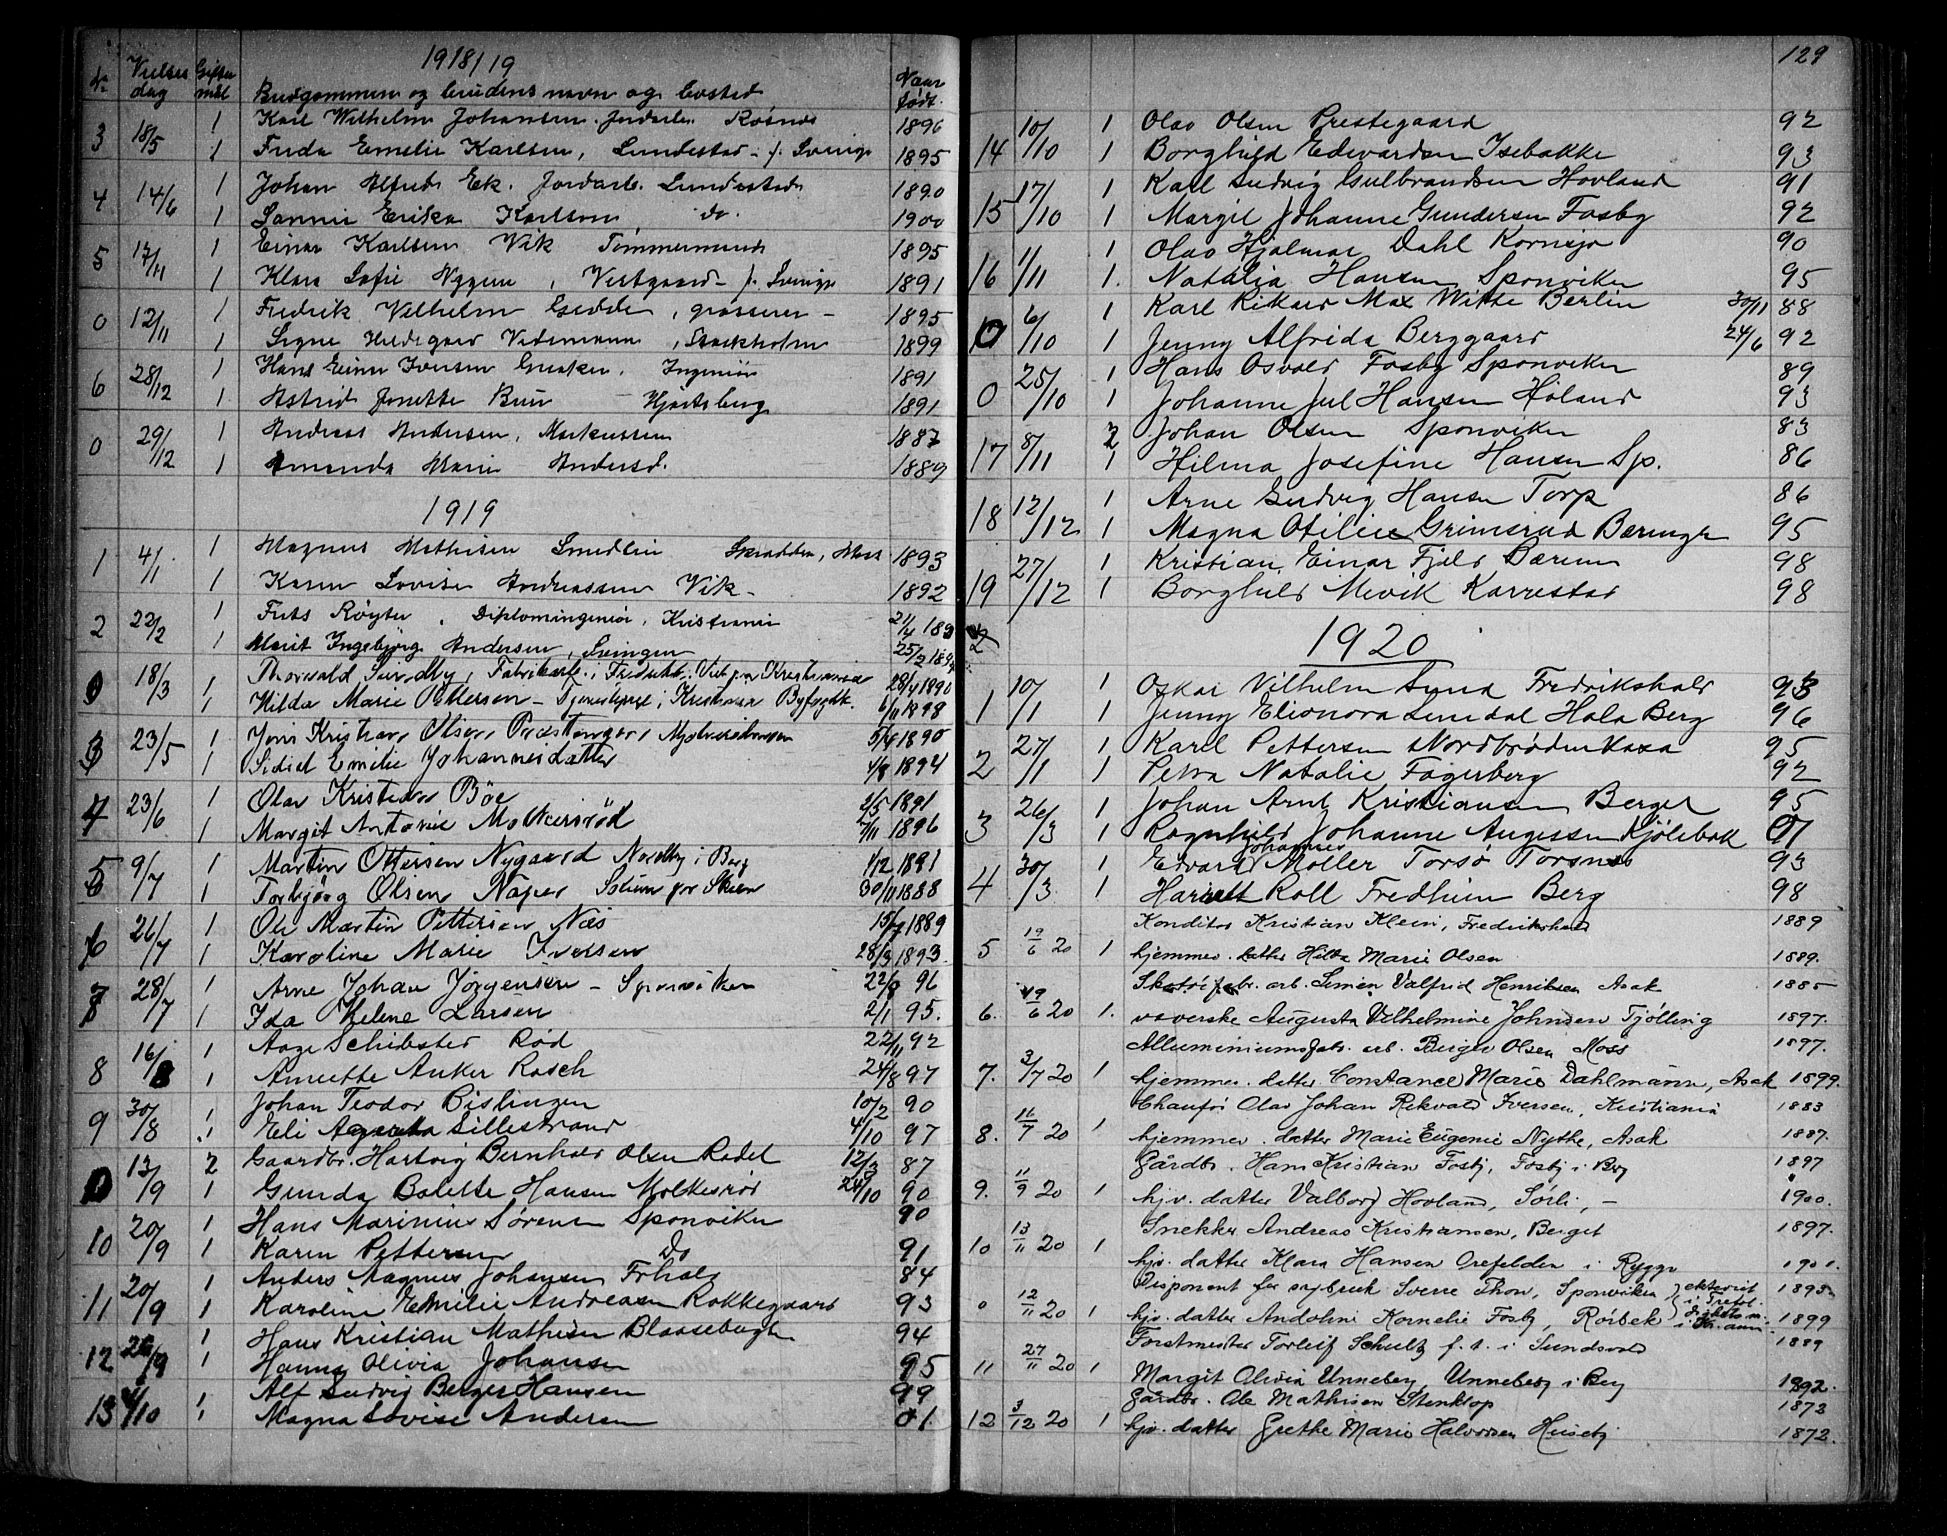 1918/19
Nr Vielses dag Giftermål Brudgommens og brudens navn og bosted Naar født.
3 18/5 1 Karl Wilhelm Johansen Jordarb. Rösnes 1896
1 Frida Emelie Karlsen, Lundestad - f. Sverige 1895
4 14/6 1 Johan Alfred Ek. Jordarb. Lundestad 1890
1 Erika Karlsson do. 1900
5 17/11 1 Einar Karlsen Vik Tømmermand 1895
1 Klara Sofie Nygren, Vestgaard - f. Sverige 1891
0 12/11 1 Fredrik Vilhelm Gedde, grosserer - 1895
1 Signe Hildegard, Stockholm 1899
6 28/12 1 Hans Einar Iversen, Ingeniør 1891
1 Astrid Jenette Buer Hjortsberg 1891
0 29/12 1 Andreas Andersen, Markussen 1887
1 Amanda Marie Andersd. 1889
1919
1 4/1 1 Magnus Mathisen Smedlien Skrædder, Moss 1893
1 Karen Lovise Andreassen Vik - 1892
2 22/2 1 Frits Røyter, Diplomingeniør, Kristiania 21/4 189
1 Marit Ingebjørg Andersen, Svingen 25/2 189
0 18/3 1 Thorvald Sundby, Fabrikarb. i Fredrikst. 28/4 1890
1 Hilda Marie Pettersen - Tjenestepige i Kristiania Byfogdk. 6/11 1898
3 23/5 1 Jens Kristian Olsen 5/4 1890
1 Emilie Johannesdatter 4/8 1894
4 23/6 1 Olav Kristian Bøe 2/5 1891
1 Margit Antonie Molkersrød 7/11 1896
5 9/7 1 Martin Ottersen Nygaard Nordby i Berg 1/12 1891
1 Torbjørg Olsen Naper Solum pr Skien 30/11 1888
6 26/7 1 Ole Martin Pettersen Næs 15/7 1889
1 Karoline Marie Iversen 28/3 1893
7 28/7 1 Arne Johan Jørgensen - Sponviken 22/8 96
1 Ida Helene Larsen 2/1 95.
8 16/8 1 Aage Schibsted Rød 22/11 92
1 Annette Anker Rasch 24/8 97
9 30/8 1 Johan Teodor Bislingen 10/2 90
1 Eli Agneta Lillestrand 4/10 97
0 13/9 2 Gaardbr. Hartvig Bernhard Olsen Rødet 12/3 87
1 Gunda Bolette Hansen Molkesrød 24/10 90
10 20/9 1 Hans Marinius Sørensen Sponviken 90
1 Karen Pettersen Do 91
11 20/9 1 Anders Magnus Johansen Frhald 84
1 Karoline Emilie Andreasen Rokkegaard 93
12 26/9 1 Hans Kristian Mathisen Blaasebugt 94
1 Hanna Olivia Johansen 95
13 4/10 1 Alf Ludvig Berger Hansen 99
1 Magna Lovise Andersen 01
129
14 10/10 1 Olav Olsen Prestegaard 92
1 Borghild Edvardsen Isebakke 93
15 17/10 1 Karl Ludvig Gulbrandsen Hovland 91
1 Margit Johanne Gundersen Fosby 92
16 1/11 1 Olav Hjalmar Dahl Kornsjø 90
1. Natalia Hansen Sponviken 95
0 6/10 1 Karl Rikard Max Witte Berlin 30/11 88
1 Jenny Alfrida Berggaard 24/6 92
0 25/10 1 Hans Osvald Fosby Sponviken 89
1 Johanne Jul Hansen Høland 93
17 8/11 2 Johan Olsen Sponviken 83
1 Hilma Josefine Hansen Sp. 86
18 12/12 1 Arne Ludvig Hansen Torp 86
1 Magna Otilie Grimsrud 95
19 27/12 1 Kristian Einar Fjeld Bærum 98
1 Borghild Mevik Karrestad 98
1920
1 10/1 1 Oskar Vilhelm Lund Fredrikshald 93
1 Jenny Elionora Lundal Hola Berg 96
2 27/1 1 Karl Pettersen Nordbrøden Vasa 95
1 Petra Natalie Fagerberg 92
3 26/3 1 Johan Arnt Kristiansen Berget 95
1 Ragnhild Johanne Augessen Kjølebok 01
4 30/3 1 Edvard Johannes Møller Torsø Torsnes 93
1 Harriett Roll Fredheim Berg 98
Konditor Kristian Klein, Fredrikshald 1889
5 19/6 20 1 hjemmev. datter Hilda Marie Olsen 1889.
Skotøifabr. arb. Simen Valfrid Henriksen Asak 1885
6. 19/6 20 1. væverske Augusta Vilhelmine Johnsen Tjølling 1897.
Alluminiumsfabr. arb. Berger Olsen Moss 1897.
7. 3/7 20 1 hjemmev. datter Constance Marie Dahlmann, Asak 1899.
Chaufør Olav Johan Rekvald Iversen, Kristiania 1883
8. 11/7 20 1 hjemmev. datter Marie Eugenie Nythe, Asak 1887.
Gårdbr. Hans Kristian Fosby, Fosby i Berg 1897
9. 11/9 20 1 hjv. datter Valborg Hovland, Sørli - 1900.
Snekker Andreas Kristiansen, Berget 1897.
10 13/11 20 1 hjv. datter Klara Hansen Orefelden i Rygge 1901.
Disponent for sagbruk Sverre Thon, Sponviken 1895
0 12/11 20 1 hjv. datter Andohne Kornelie Fosby, Rørbek 1899
Forstmester Torleif Schultz f. t. i Sundsvald 1889
11 27/11 20 1 Margit Olivia Unneberg Unneberg i Berg 1892.
Gårdbr. Ole Mathisen Stenktop 1873
12 3/12 20 1 hjv. datter Grethe Marie Halvorsen Huseby 1872.